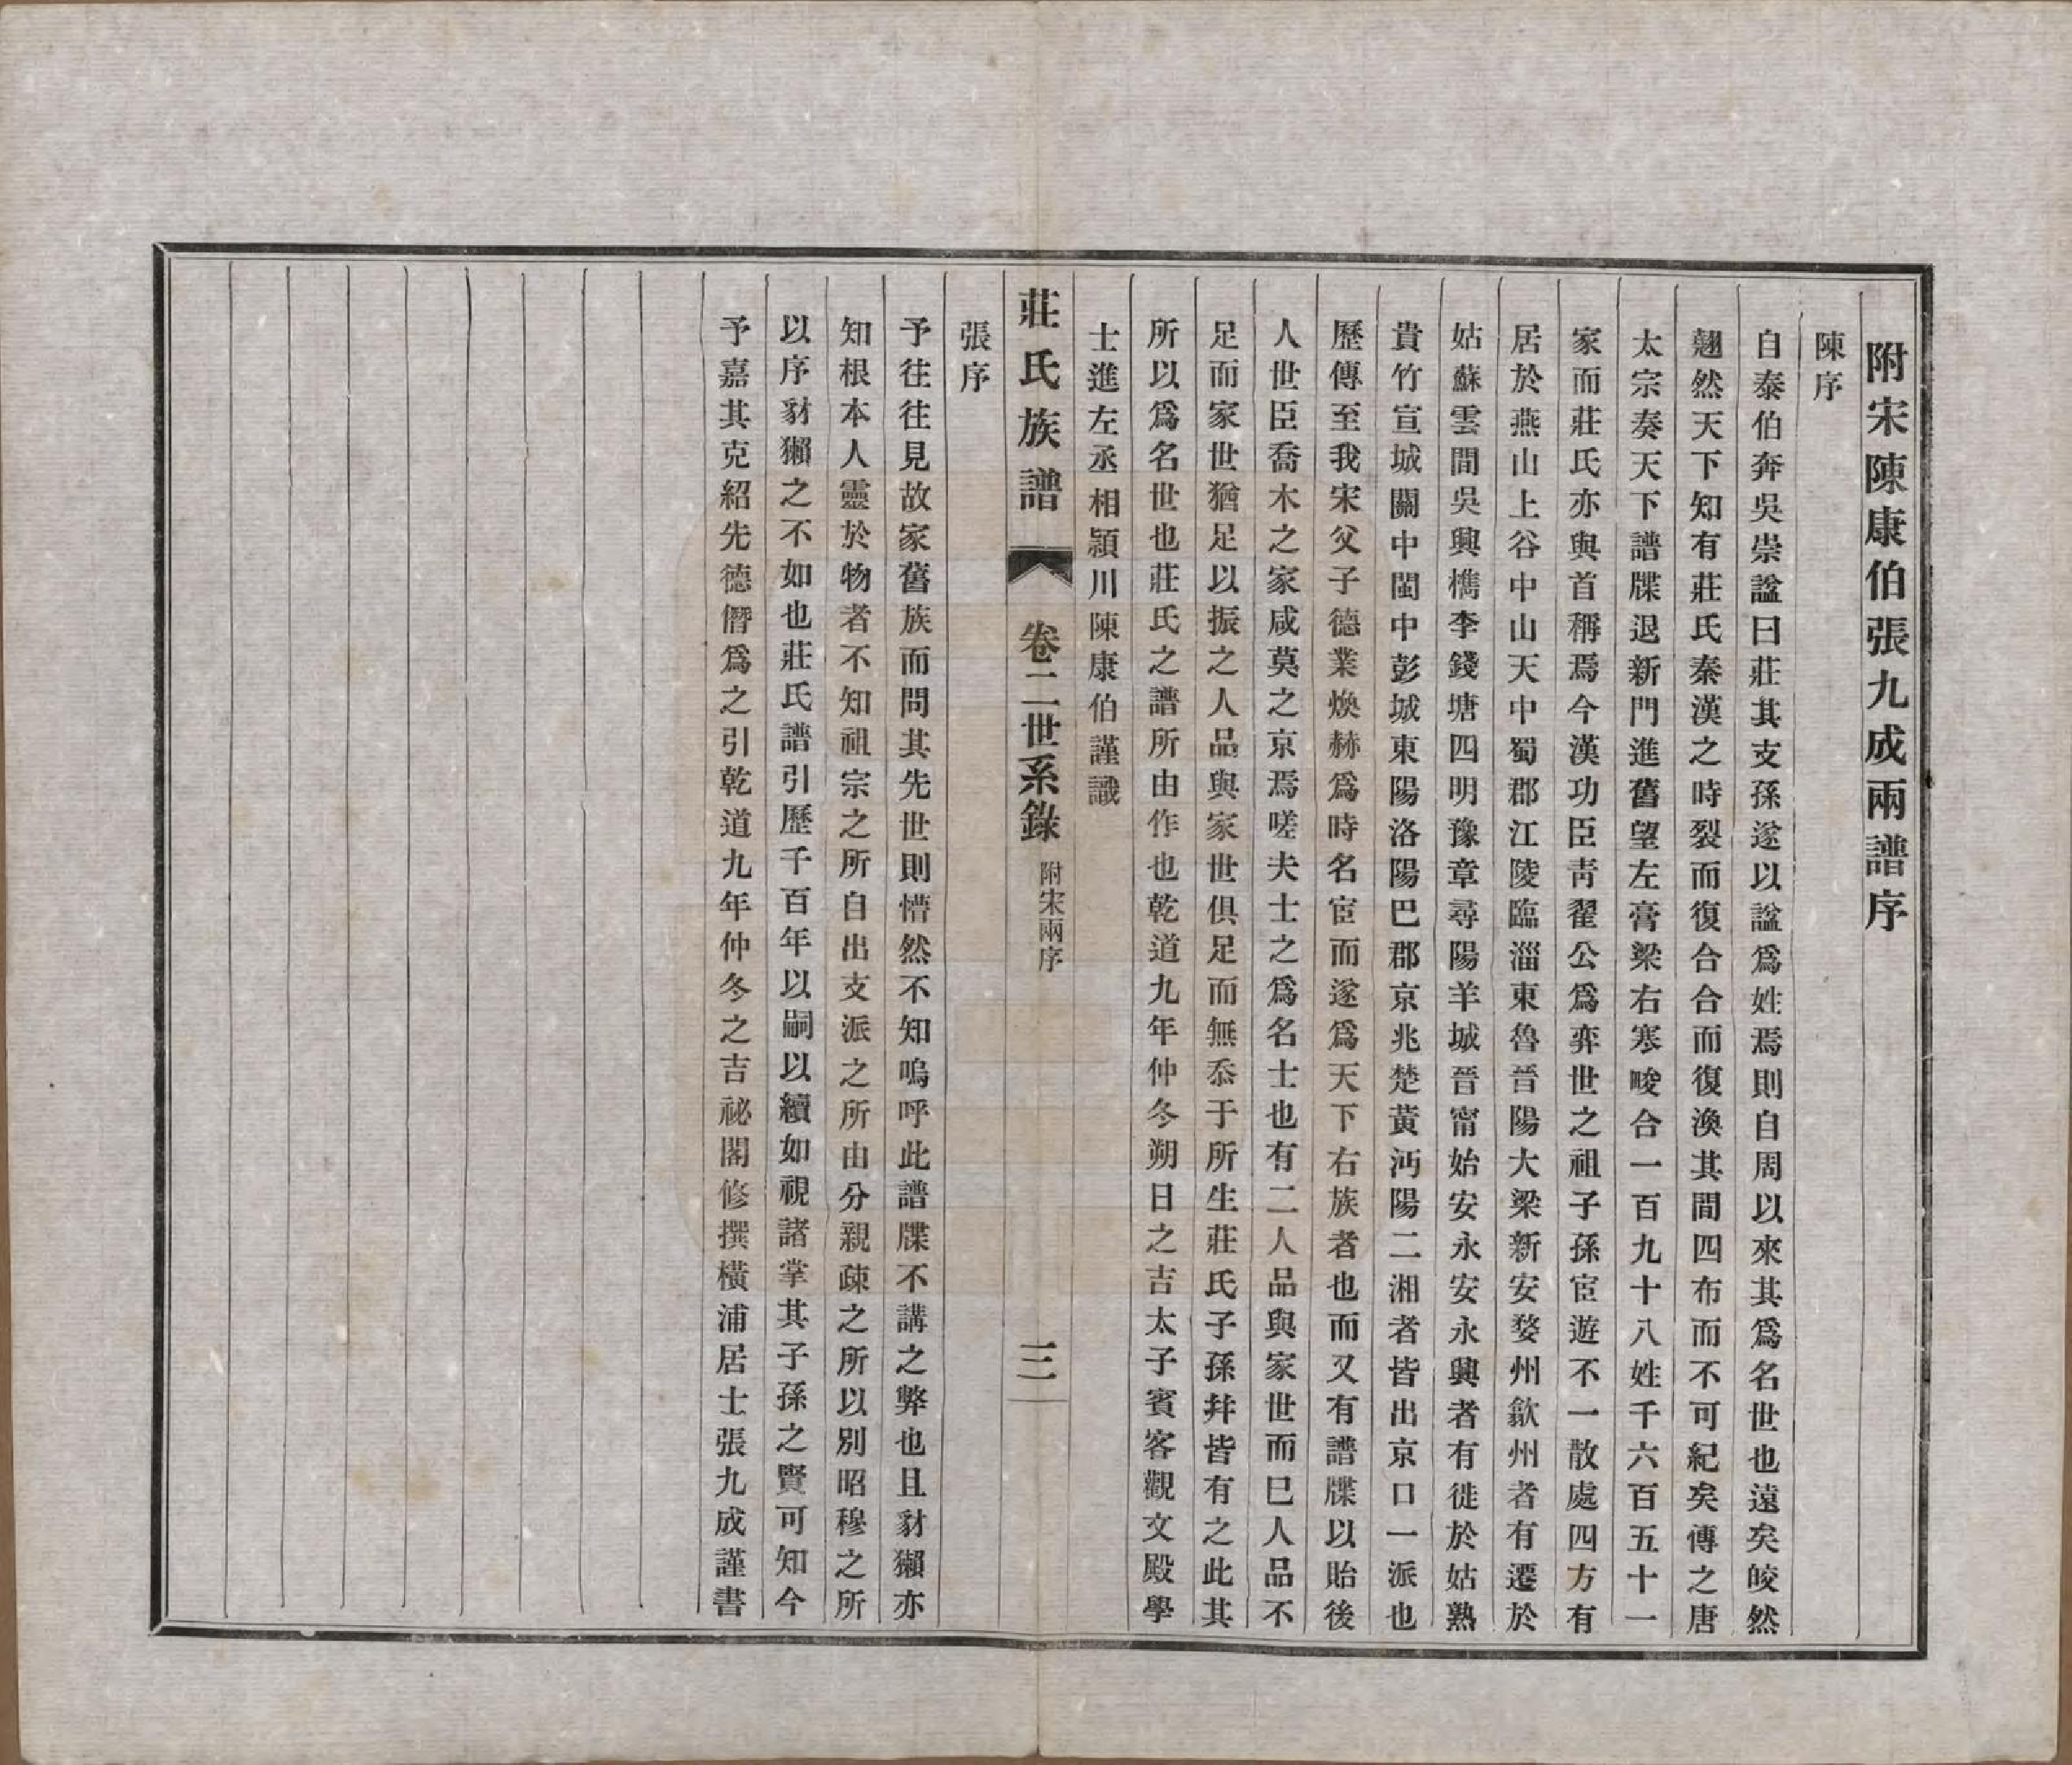 附宋陳康伯張九成兩譜序
陳序
自泰伯奔吳崇諡曰莊其支孫遂以諡爲姓焉則自周以來其爲名世也遠矣皎然
翹然天下知有莊氏秦漢之時裂而復合合而復渙其間四布而不可紀矣傳之唐
太宗奏天下譜牒退新門進舊望左膏梁右寒畯合一百九十八姓千六百五十一
家而莊氏亦與首稱焉今漢功臣靑翟公爲弈世之祖子孫宦遊不一散處四方有
居於燕山上谷中山天中蜀郡江陵臨淄東魯晉陽大梁新安婺州歙州者有遷於
姑蘇雲間吳興檇李錢塘四明豫章尋陽羊城晉甯始安永安永興者有徙於姑熟
貴竹宣城關中閩中彭城東陽洛陽巴郡京兆楚黃沔陽二湘者皆出京口一派也
歷傳至我宋父子德業煥赫爲時名宦而遂爲天下右族者也而又有譜牒以貽後
人世臣喬木之家咸莫之京焉嗟夫士之爲名士也有二人品與家世而巳人品不
足而家世猶足以振之人品與家世俱足而無忝于所生莊氏子孫并皆有之此其
所以爲名世也莊氏之譜所由作也乾道九年仲冬朔日之吉太子賓客觀文殿學
士進左丞相潁川陳康伯謹識
莊氏族譜 卷二世系錄 附宋兩序 三
張序
予往往見故家舊族而問其先世則懵然不知嗚呼此譜牒不講之弊也且豺獺亦
知根本人靈於物者不知祖宗之所自出支派之所由分親疎之所以別昭穆之所
以序豺獺之不如也莊氏譜引歷千百年以嗣以續如視諸掌其子孫之賢可知今
予嘉其克紹先德僭爲之引乾道九年仲冬之吉祕閣修撰橫浦居士張九成謹書